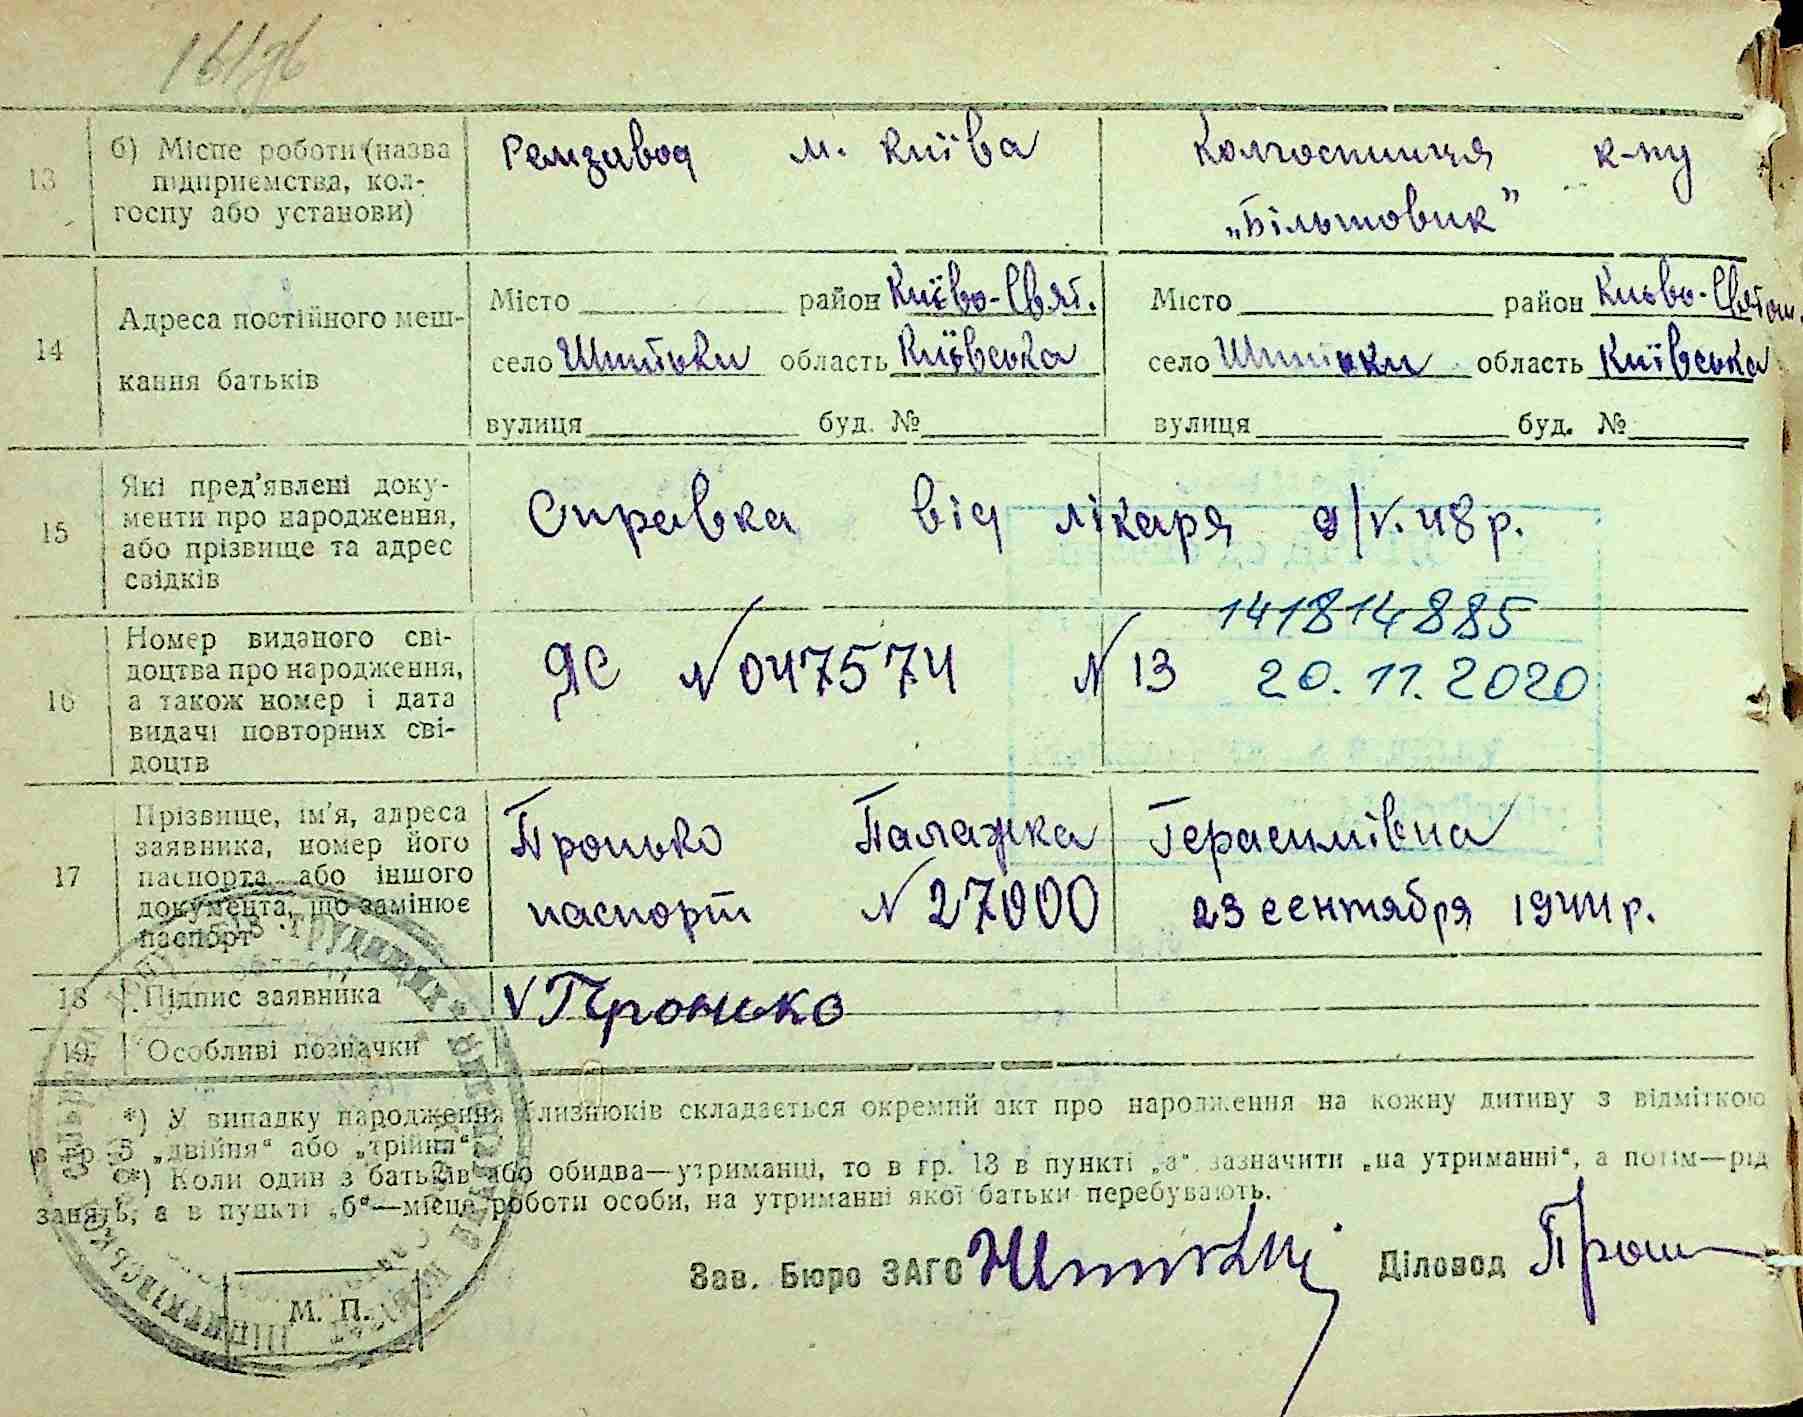 13 б) Місце роботи (назва підприємства, кол-
госпу або установи)
Ремзавод м. Київа
Колгоспниця к-пу
„Більшовик”
14 Адреса постійного меш-
кання батьків
Місто район Київо-Свят.
село Шпитьки область Київська
вулиця буд. №
Місто район Києво-Святош.
село Шпитьки область Київська
вулиця буд. №
15 Які пред'явлені доку-
менти про народження,
або прізвище та адрес
свідків
Справка від лікаря 9/V.48р.
16 Номер виданого сві-
доцтва про народження,
а також номер і дата
видачі повторних сві-
доцтв
ЯС № 047574 № 13
141814885
20.11.2020
17 Прізвище, ім'я, адреса
заявника, номер його
паспорта або іншого
документа, що замінює
паспорт
Пронько Палажка Герасимівна
паспорт № 27000 23 сентября 1944р.
18 Підпис заявника
V Пронько
19 Особливі позначки
*) У випадку народження близнюків складається окремий акт про народження на кожну дитину з відміткою
в гр. 5 „двійня“ або „трійня“.
*) Коли один з батьків або обидва—утриманці, то в гр. 13 в пункті „а“ зазначити „на утриманні“, а потім—рід
занять, а в пункті „б“—місце роботи особи, на утриманні якої батьки перебувають.
Зав. Бюро ЗАГС
Діловод
М. П.